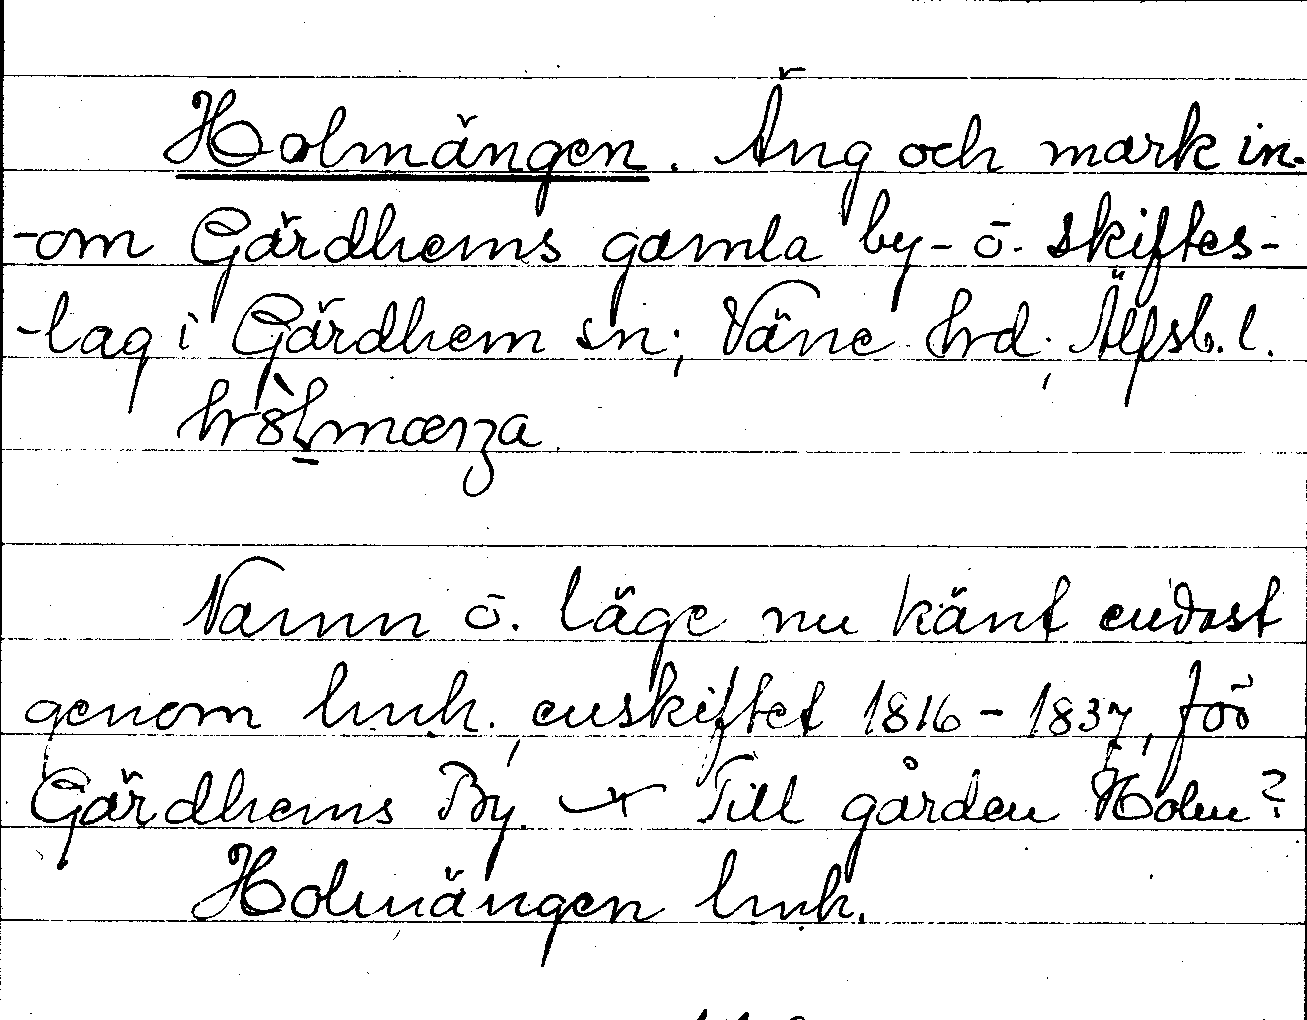 Holmängen. Äng och mark in-
-om Gärdhems gamla by- o. skiftes-
-lag i Gärdhem sn; Väne hrd; Älfsb. l.
Namn o. läge nu känt endast
genom lmh., enskiftet 1816-1837, för
Gärdhems By. Till gården Holm?
Holmängen lmh.